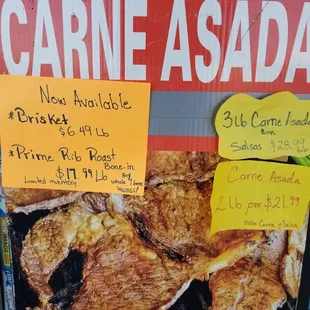 CARNE ASADA
Now Available
*Brisket
$6.49 Lb
*Prime Rib Roast
Bone-in
$17.99 Lb
Limited inventory
Buy
whole
3 Lb Carne Asada
con
Salsas $28.99
Carne Asada
2 lb por $21.99
solo Carne y Salsa